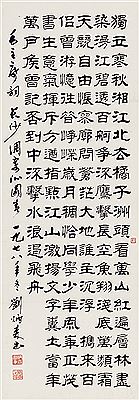 獨立寒秋湘江北去橘子洲頭看萬山紅遍層林盡
染漫江碧透百舸爭流鷹擊長空魚翔淺底萬類霜
天競自由悵寥廓問蒼茫大地誰主沉浮攜來百
侶曾游憶往昔崢嶸歲月稠恰同學少年風華正茂
書生意氣揮斥方遒指點江山激揚文字糞土當年
萬戶侯曾記否到中流擊水浪遏飛舟
毛主席詞長沙調寄沁園春一九七八年劉炳森書